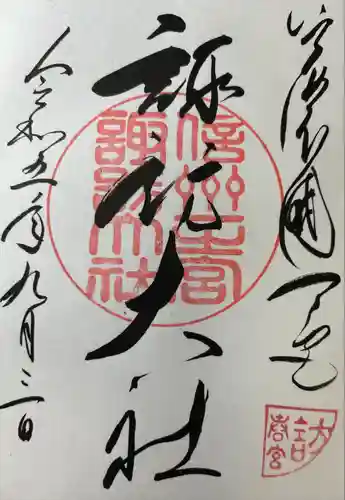 信濃國一之宮
諏訪大社
令和五年九月三日
信州一之宮
諏訪大社
春宮